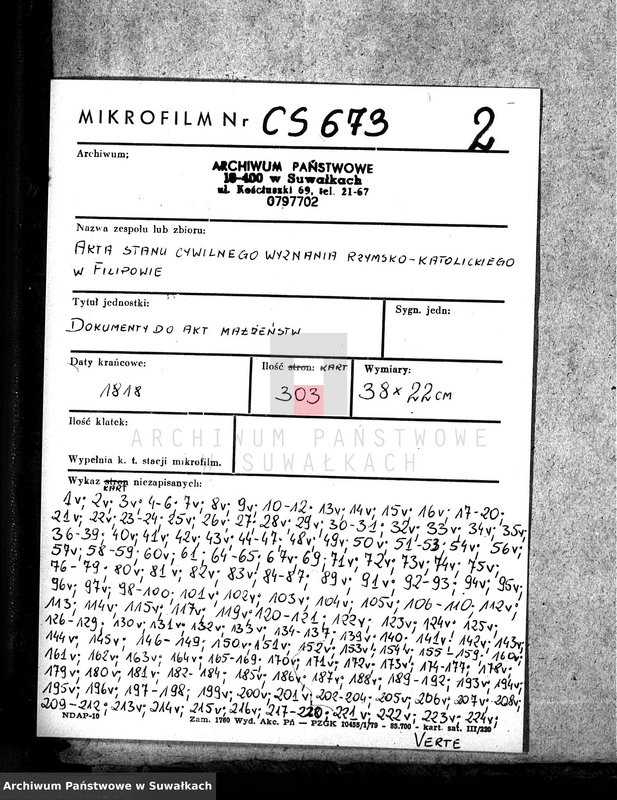 MIKROFILM Nr CS 673 2
Archiwum;
ARCHIWUM PAŃSTWOWE
16-400 w Suwałkach
ul. Kościuszki 69, tel. 21-67
0797702
Nazwa zespołu lub zbioru:
AKTA STANU CYWILNEGO WYZNANIA RZYMSKO-KATOLICKIEGO
W FILIPOWIE
Tytuł jednostki:
Sygn. jedn:
DOKUMENTY DO AKT MAŁŻEŃSTW
Daty krańcowe:
Ilość stron: KART
Wymiary:
1818
303
38 x 22 CM
Ilość klatek:
ARCHIWUM PAŃSTWOWE
W SUWAŁKACH
Wypełnia k. t. stacji mikrofilm.
Wykaz stron niezapisanych:
KART
1v; 2v; 3v; 4-6; 7v; 8v; 9v; 10-12; 13v; 14v; 15v; 16v; 17-20;
21v; 22v; 23-24; 25v; 26v; 27; 28v; 29v; 30-31; 32v; 33v; 34v; 35v;
36-39; 40v; 41v; 42v; 43v; 44-47; 48v; 49v; 50v; 51-53; 54v; 56v;
57v; 58-59; 60v; 61; 64-65; 67v; 69; 71v; 72v; 73v; 74v; 75v;
76-79; 80v; 81v; 82v; 83v; 84-87; 89v; 91v; 92-93; 94v; 95v;
96v; 97v; 98-100; 101v; 102v; 103v; 104v; 105v; 106-110; 112v;
113; 114v; 115v; 117v; 119v; 120-121; 122v; 123v; 124v; 125v;
126-129; 130v; 131v; 132v; 133v; 134-137; 139v; 140; 141v; 142v; 143v;
144v; 145v; 146-149; 150v; 151v; 152v; 153v; 154v; 155-159; 160v;
161v; 162v; 163v; 164v; 165-169; 170v; 171v; 172v; 173v; 174-177; 178v;
179v; 180v; 181v; 182-184; 185v; 186v; 187v; 188v; 189-192; 193v; 194v;
195v; 196v; 197-198; 199v; 200v; 201v; 202-204; 205v; 206v; 207v; 208v;
209-212; 213v; 214v; 215v; 216v; 217-220; 221v; 222v; 223v; 224v;
NDAP-10 Zam. 1760 Wyd. Akc. Pń — PZGK 10455/1/79 - 85.700 - kart. sat. III/220
VERTE
Archiwum Państwowe w Suwałkach